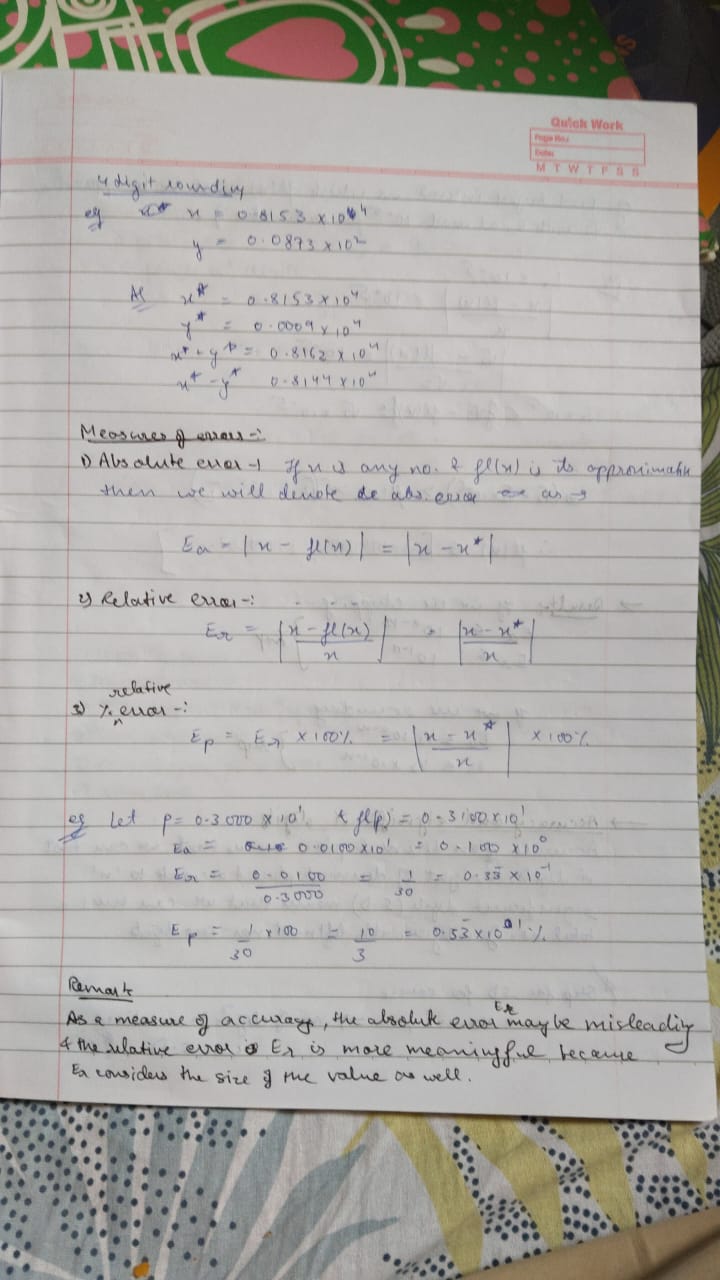 Quick Work
Page No.:
Date:
M T W T F S S
4 digit rounding
eg x = 0.8153 × 10⁴
y = 0.0873 × 10²
As x* = 0.8153 × 10⁴
y* = 0.0009 × 10⁴
x* + y* = 0.8162 × 10⁴
x* - y* 0.8144 × 10⁴
Measures of errors -:
1) Absolute error → If x is any no. & fl(x) is its approximatn
then we will denote de abs. error as →
Ea = |x - fl(x)| = |x - x*|
2) Relative error -:
Er = |x - fl(x) / x| = |x - x* / x|
3) % relative error -:
Ep = Er × 100% = |x - x* / x| × 100%
eg Let p = 0.3000 × 10¹ & fl(p) = 0.3100 × 10¹
Ea = 0.0100 × 10¹ = 0.100 × 10⁰
Er = 0.0100 / 0.3000 = 1/30 = 0.33̄ × 10⁻¹
Ep = 1/30 × 100 = 10/3 = 0.33̄ × 10¹ %
Remark
As a measure of accuracy, the absolute error Ea may be misleading
& the relative error Er is more meaningful because
Er considers the size of the value as well.